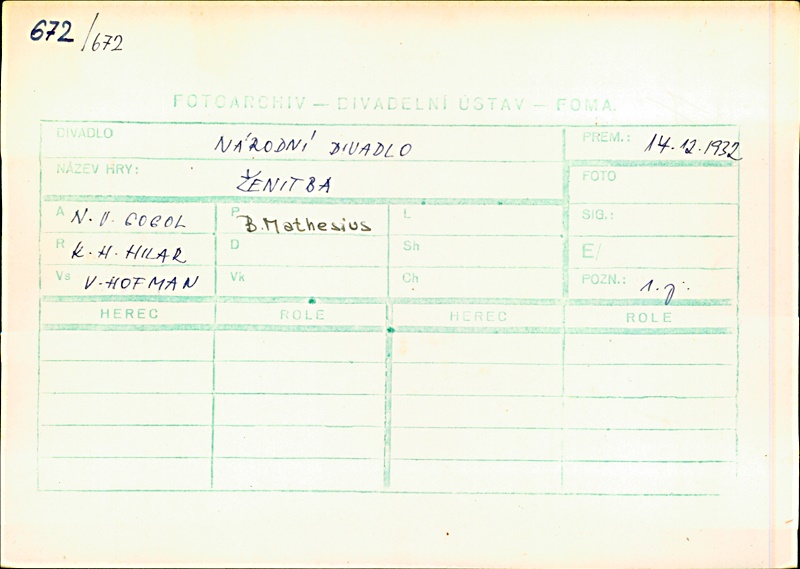 672/672
FOTOARCHIV — DIVADELNÍ ÚSTAV — FOMA.
DIVADLO NÁRODNÍ DIVADLO PREM.: 14.12.1932
NÁZEV HRY: ŽENITBA FOTO
A N.V. GOGOL P B. Mathesius L SIG.:
R K.H. HILAR D Sh E/
Vs V. HOFMAN Vk Ch POZN.: 1. j.
HEREC ROLE HEREC ROLE